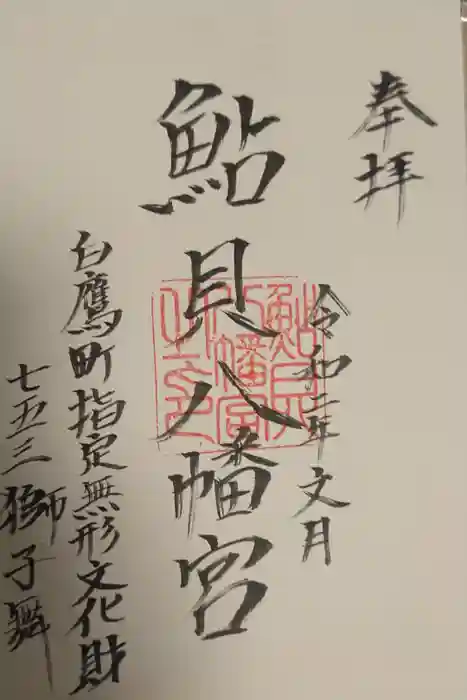 奉拝
令和二年文月
鮎貝八幡宮
鮎貝八幡宮之印
白鷹町指定無形文化財
七五三獅子舞